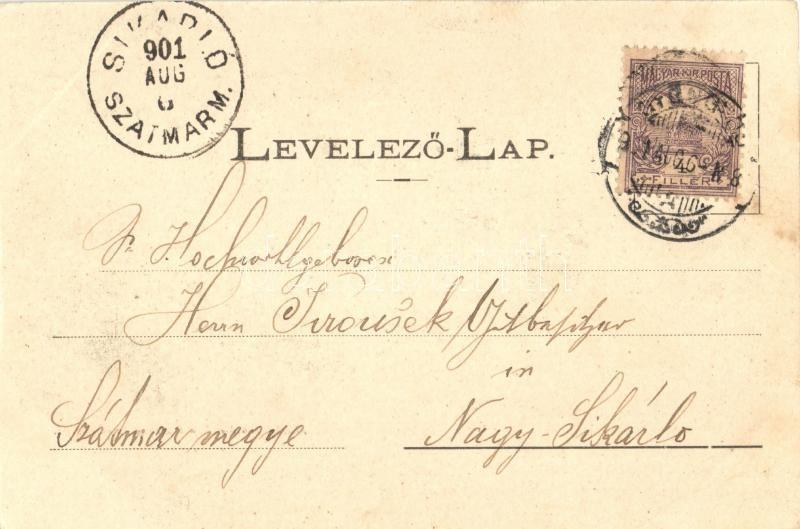 SIKARLÓ
901
AUG
6
SZATMARM.
MAGYAR·KIR·POSTA
FILLÉR
LEVELEZŐ-LAP.
Sr. Hochwohlgeboren
Herrn Jiroušek Gutbesitzer
in
Szátmar megye
Nagy-Sikárlo